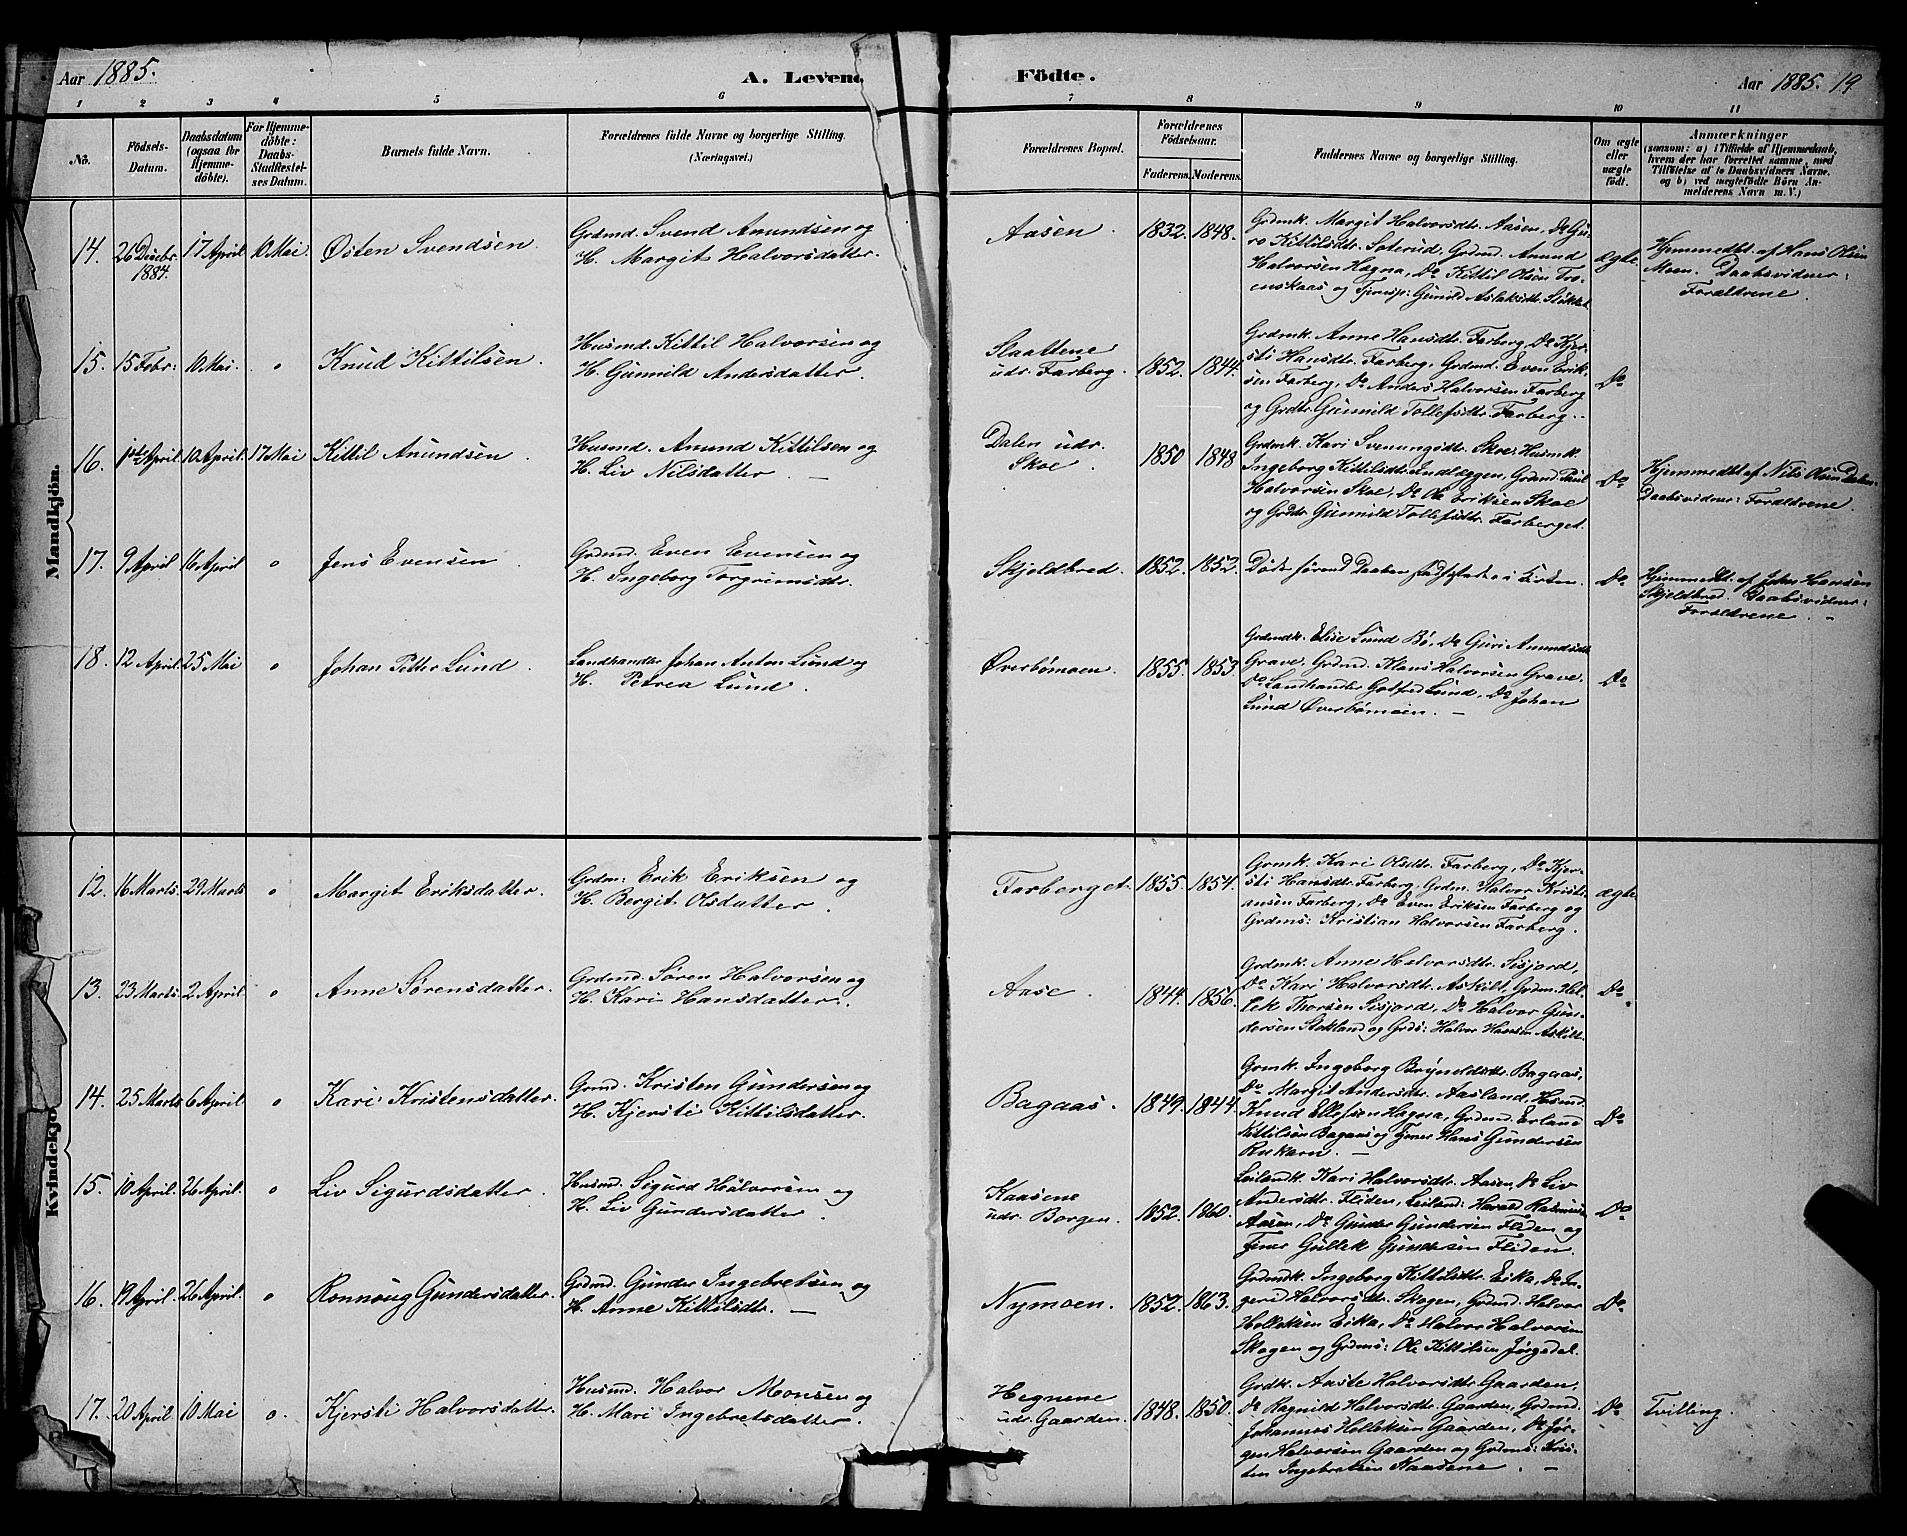 Aar 1885.
A. Levende Födte.
Aar 1885. 19
1 2 3 4 5 6 7 8 9 10 11
No.
Födsels-Datum.
Daabsdatum (ogsaa for Hjemme-döbte).
For Hjemme-döbte: Daabs-Stadfæstel-ses Datum.
Barnets fulde Navn.
Forældrenes fulde Navne og borgerlige Stilling.
(Næringsvei.)
Forældrenes Bopæl.
Forældrenes Födselsaar.
Faderens. Moderens.
Faddernes Navne og borgerlige Stilling.
Om ægte eller uægte födt.
Anmærkninger
(saasom: a) i Tilfælde af Hjemmedaab, hvem der har forrettet samme, med Tilföielse af to Daabsvidners Navne. og b) ved uegtefödte Börn An-melderens Navn m. V.)
Mandkjön.
14. 26 Decbr. 1884. 17 April 10 Mai Østen Svendsen.
Grdmd. Svend Amundsen og
H. Margit Halvorsdatter.
Aasen. 1832. 1848.
Grdmk. Margit Halvorsdtr. Aasen. Do Gu-
ro Kittilsdtr. Soterud, Grdmd. Anund
Halvorsen Hagna, Do Kittil Olsen Tro-
enskaas og Tjenesp: Gunild Aslaksdtr. Stokket
ægte
Hjemmedbt. af Hans Olsen
Moen. Daabsvidner:
Forældrene.
15. 15 Febr: 10 Mai. " Knud Kittilsen.
Husmd. Kittil Halvorsen og
H. Gunnild Andersdatter.
Slaattene
udr. Farberg. 1852. 1844.
Grdmk. Anne Hansdtr. Farberg, Do Kjer-
sti Hansdtr. Farberg, Grdmd. Even Erik-
sen Farberg, Do Anders Halvorsen Farberg
og Grdtr. Gunnild Tollefsdtr. Farberg.
Do
16. 1ste April 10 April. 17 Mai Kittil Anundsen.
Husmd. Anund Kittilsen og
H. Liv Nilsdatter.
Dalen udr.
Skoe. 1850 1848
Grdmk. Kari Svenungsdtr. Skoe, Husmk.
Ingeborg Kittilsdtr. Indlæggen, Grdmd. Paul
Halvorsen Skoe, Do Ole Eriksen Skoe
og Grdtr. Gunnild Tollefsdtr. Farberget.
Do
Hjemmedbt. af Nils Olsen Dalen.
Daabsvidner: Forældrene.
17. 9 April 16 April " Jens Evensen
Grdmd. Even Evensen og
H. Ingeborg Torgrimsdtr.
Skjeldbred. 1852. 1852.
Døde førend Daaben stadfæstedes i Kirken.
Do
Hjemmedbt. af John Hansen
Skjeldbred. Daabsvidner:
Forældrene.
18. 12 April. 25 Mai " Johan Petter Lund.
Landhandler Johan Anton Lund og
H. Petrea Lund.
Øverbømoen. 1855. 1853.
Grdmk. Elise Lund Bø, Do Guri Amundsdtr.
Grave, Grdmd. Klaus Halvorsen Grave,
Do Landhandler Gotfred Lund, Do Johan
Lund Øverbømoen.
Do
Kvindekjö
12. 16 Marts. 29 Marts " Margit Eriksdatter.
Grdm: Erik Eriksen og
H. Bergit Olsdatter.
Farberget. 1855. 1854.
Grmk. Kari Olsdtr. Farberg, Do Kjer-
sti Hansdtr. Farberg, Grdm. Halvor Kristi-
ansen Farberg, Do Even Eriksen Farberg og
Grdms: Kristian Halvorsen Farberg.
ægte
13. 23 Marts. 2 April " Anne Sørensdatter.
Grdmd. Søren Halvorsen og
H. Kari Hansdatter.
Aase. 1844. 1856.
Grdmk. Anne Halvorsdtr. Sisjord,
Do Kari Halvorsdtr. Askilt, Grdm. Hel-
lek Thorsen Sisjord, Do Halvor Gun-
dersen Stokland og Grds: Halvor Hansen Askilt.
Do
14. 25 Marts 6 April " Kari Kristensdatter.
Grmd. Kristen Gundersen og
H. Kjersti Kittilsdatter.
Bagaas. 1849. 1844.
Grmk. Ingeborg Brynildsdtr. Bagaas,
Do Margit Andersdtr. Aasland, Husmd.
Knud Ellefsen Hagna, Grdmd. Erland
Kittilsen Bagaas og Tjener Hans Gundersen
Rukarn.
Do
15. 10 April. 26 April. " Liv Sigurdsdatter.
Husmd. Sigurd Halvorsen og
H. Liv Gundersdatter.
Kaasene
udr. Borgen. 1852. 1860.
Leilandk. Kari Halvorsdtr. Aasen, Do Liv
Andersdtr. Fliden, Leiland: Harald Rasmusen
Aasen, Do Gunder Gundersen Fliden og
Tjener Gullek Gundersen Fliden.
Do
16. 19 April. 26 April. " Ronnoug Gundersdatter.
Grdmd. Gunder Ingebretsen og
H. Anne Kittilsdtr.
Nymoen. 1852. 1863.
Grdmdk. Ingeborg Kittilsdtr. Eika, Do In-
gerd Halvorsdtr. Skogen, Grdmd. Halvor
Holleksen Eika, Do Halvor Halvorsen
Skogen og Grdms: Ole Kittilsen Jørgedal.
Do
17. 20 April 10 Mai " Kjersti Halvorsdatter.
Husmd. Halvor Monsen og
H. Mari Ingebretsdatter.
Hegnene
udr. Gaarden. 1848. 1850.
Grdk. Aaste Halvorsdtr. Gaarden,
Do Ragnild Halvorsdtr. Gaarden, Grdmd.
Johannes Holleksen Gaarden, Do Jør-
gen Halvorsen Gaarden og Grdms: Kris-
ten Ingebretsen Kaasene.
Do
Tvilling.